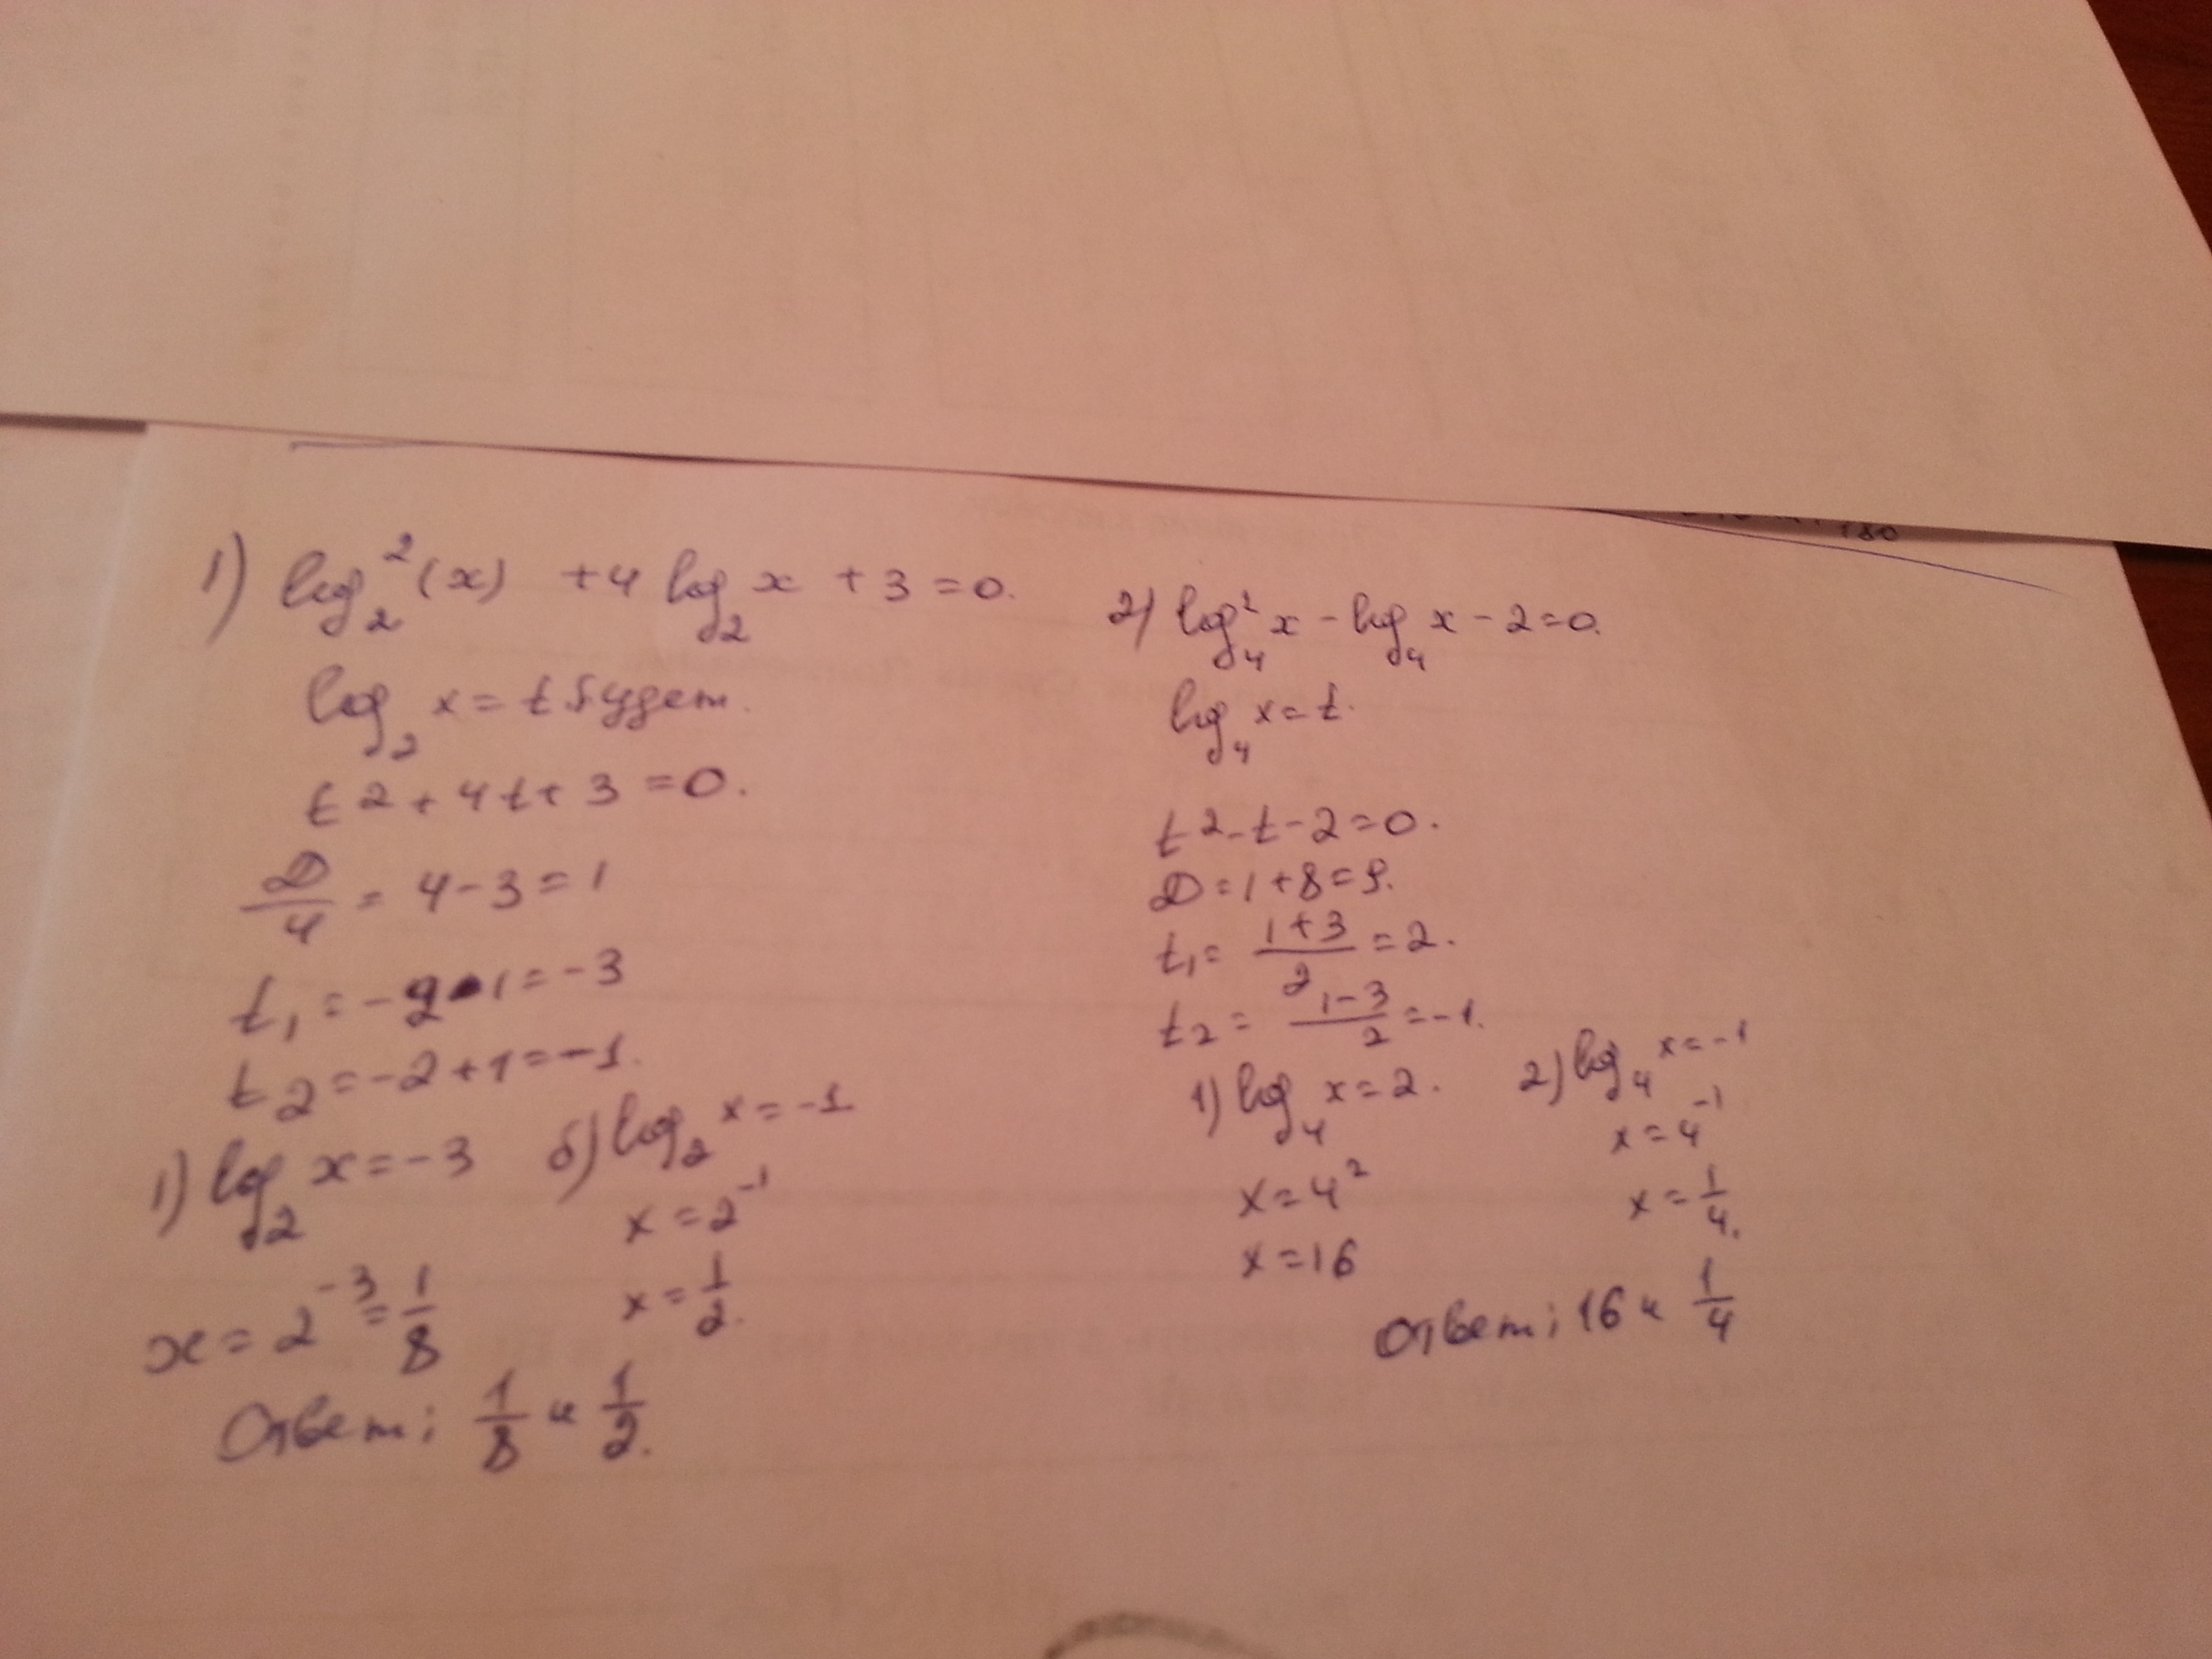 1) log₂²(x) + 4 log₂ x + 3 = 0.
log₂ x = t будет.
t2 + 4t + 3 = 0.
D/4 = 4 - 3 = 1
t₁ = -2-1 = -3
t₂ = -2+1 = -1.
1) log₂ x = -3
x = 2⁻³ = 1/8
б) log₂ x = -1
x = 2⁻¹
x = 1/2.
Ответ: 1/8 и 1/2.
2) log₄² x - log₄ x - 2 = 0.
log₄ x = t.
t² - t - 2 = 0.
D = 1 + 8 = 9.
t₁ = (1+3)/2 = 2.
t₂ = (1-3)/2 = -1.
1) log₄ x = 2.
x = 4²
x = 16
2) log₄ x = -1
x = 4⁻¹
x = 1/4.
Ответ: 16 и 1/4
180